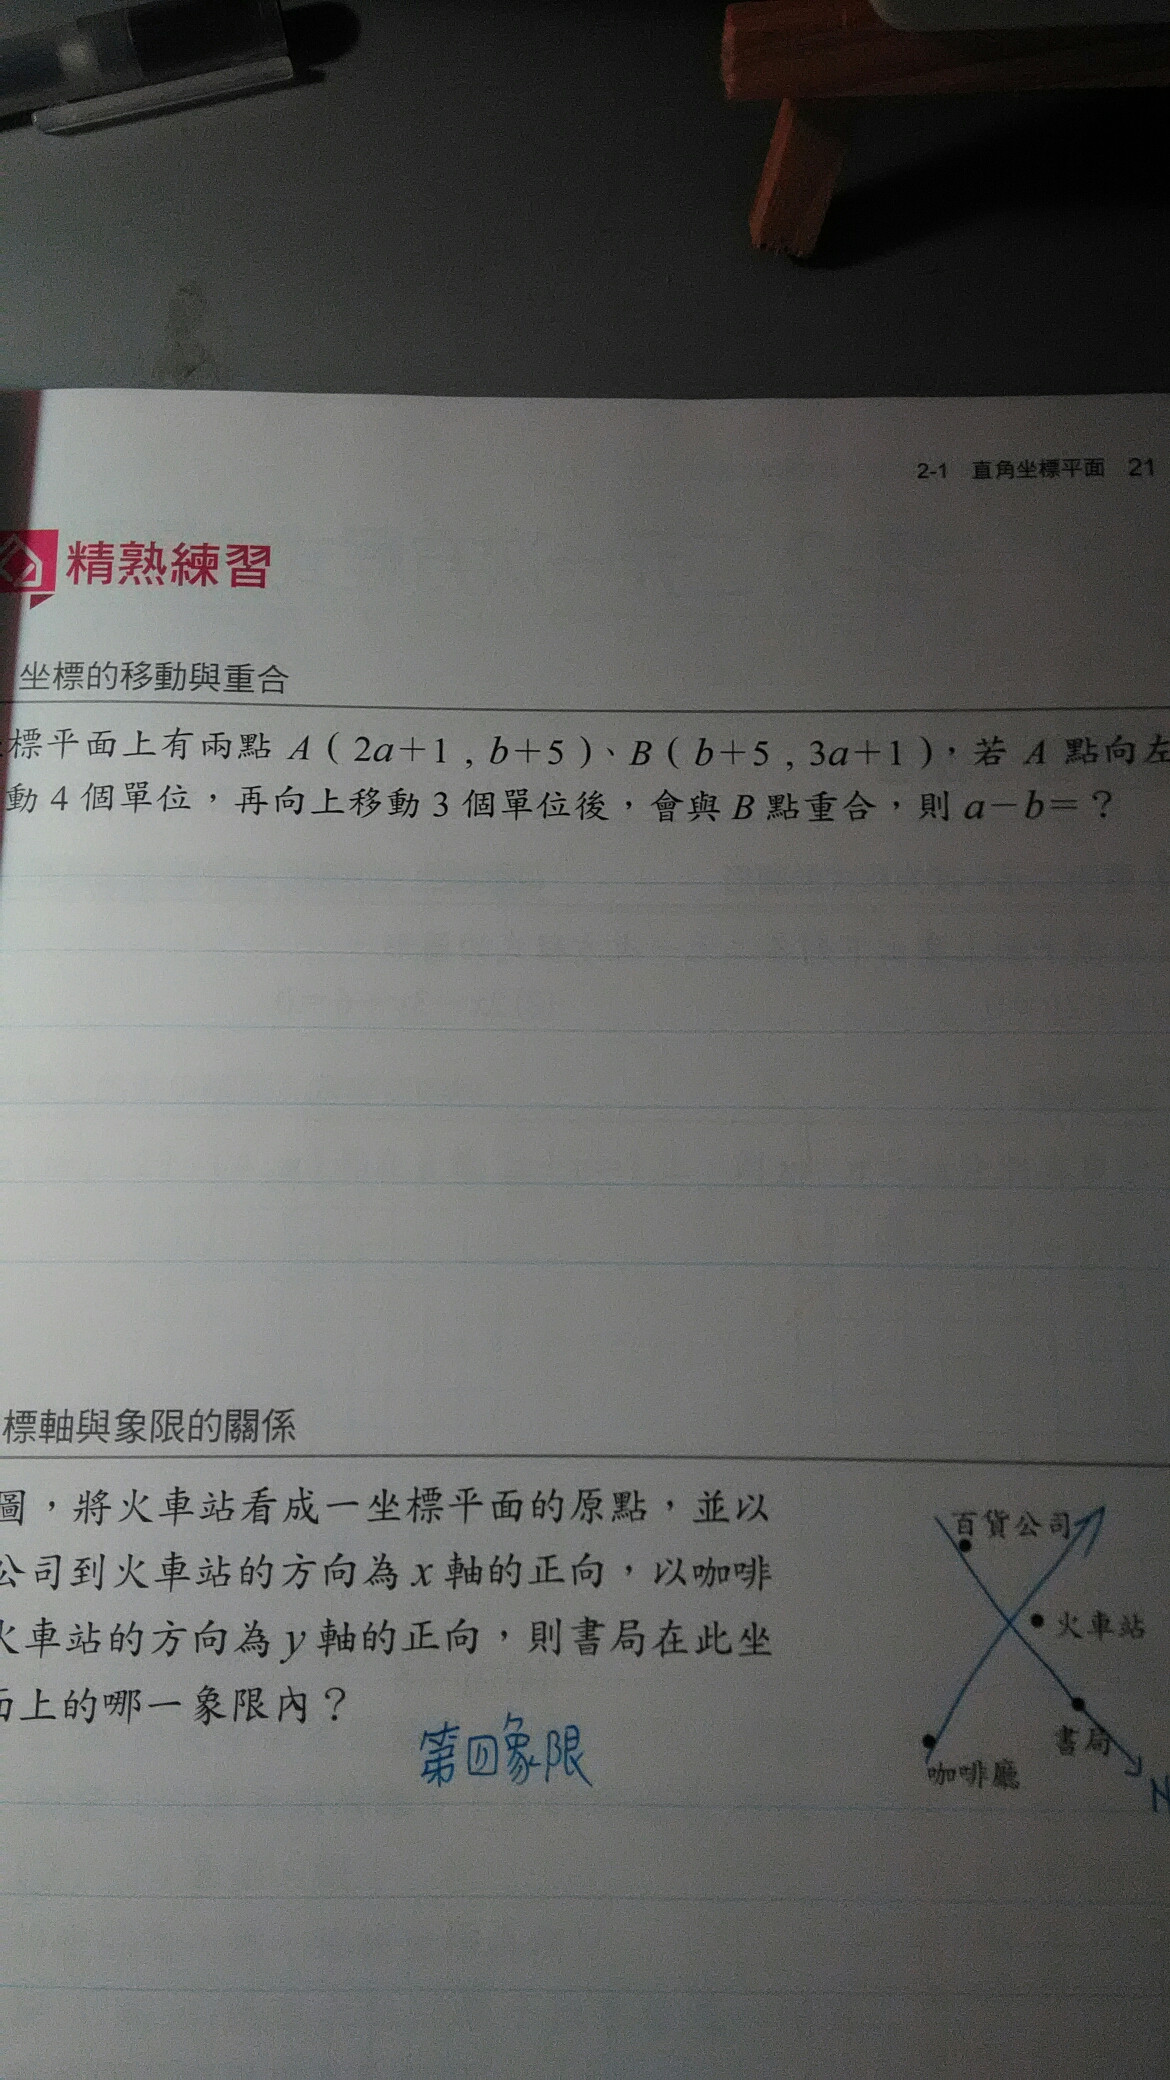 2-1 直角坐標平面 21
精熟練習
坐標的移動與重合
標平面上有兩點 A ( 2a+1 , b+5 )、B ( b+5 , 3a+1 )，若 A 點向左
動 4 個單位，再向上移動 3 個單位後，會與 B 點重合，則 a－b＝？
標軸與象限的關係
圖，將火車站看成一坐標平面的原點，並以
公司到火車站的方向為 x 軸的正向，以咖啡
火車站的方向為 y 軸的正向，則書局在此坐
面上的哪一象限內？
第四象限
百貨公司
火車站
書局
咖啡廳